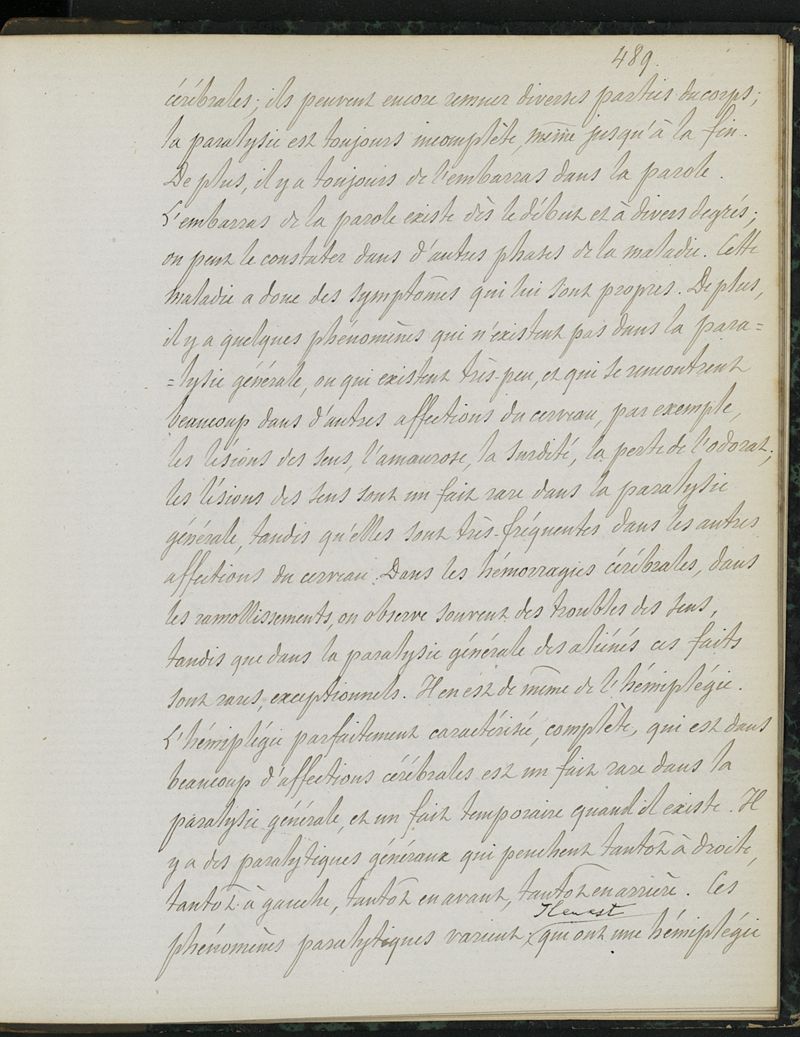 489.
cérébrales; ils peuvent encore remuer diverses parties du corps;
la paralysie est toujours incomplète, même jusqu'à la fin.
De plus, il y a toujours de l'embarras dans la parole.
L'embarras de la parole existe dès le début et à divers degrés;
on peut le constater dans d'autres phases de la maladie. Cette
maladie a donc des symptômes qui lui sont propres. De plus,
il y a quelques phénomènes qui n'existent pas dans la para=
=lysie générale, ou qui existent très-peu, et qui se rencontrent
beaucoup dans d'autres affections du cerveau, par exemple,
les lésions des sens, l'amaurose, la surdité, la perte de l'odorat;
les lésions des sens sont un fait rare dans la paralysie
générale, tandis qu'elles sont très-fréquentes dans les autres
affections du cerveau. Dans les hémorragies cérébrales, dans
les ramollissements, on observe souvent des troubles des sens,
tandis que dans la paralysie générale des aliénés ces faits
sont rares, exceptionnels. Il en est de même de l'hémiplégie.
L'hémiplégie parfaitement caractérisée, complète, qui est dans
beaucoup d'affections cérébrales est un fait rare dans la
paralysie générale, et un fait temporaire quand il existe. Il
y a des paralytiques généraux qui penchent tantôt à droite,
tantôt à gauche, tantôt en avant, tantôt en arrière. Ces
Il en est
phénomènes paralytiques varient; qui ont une hémiplégie